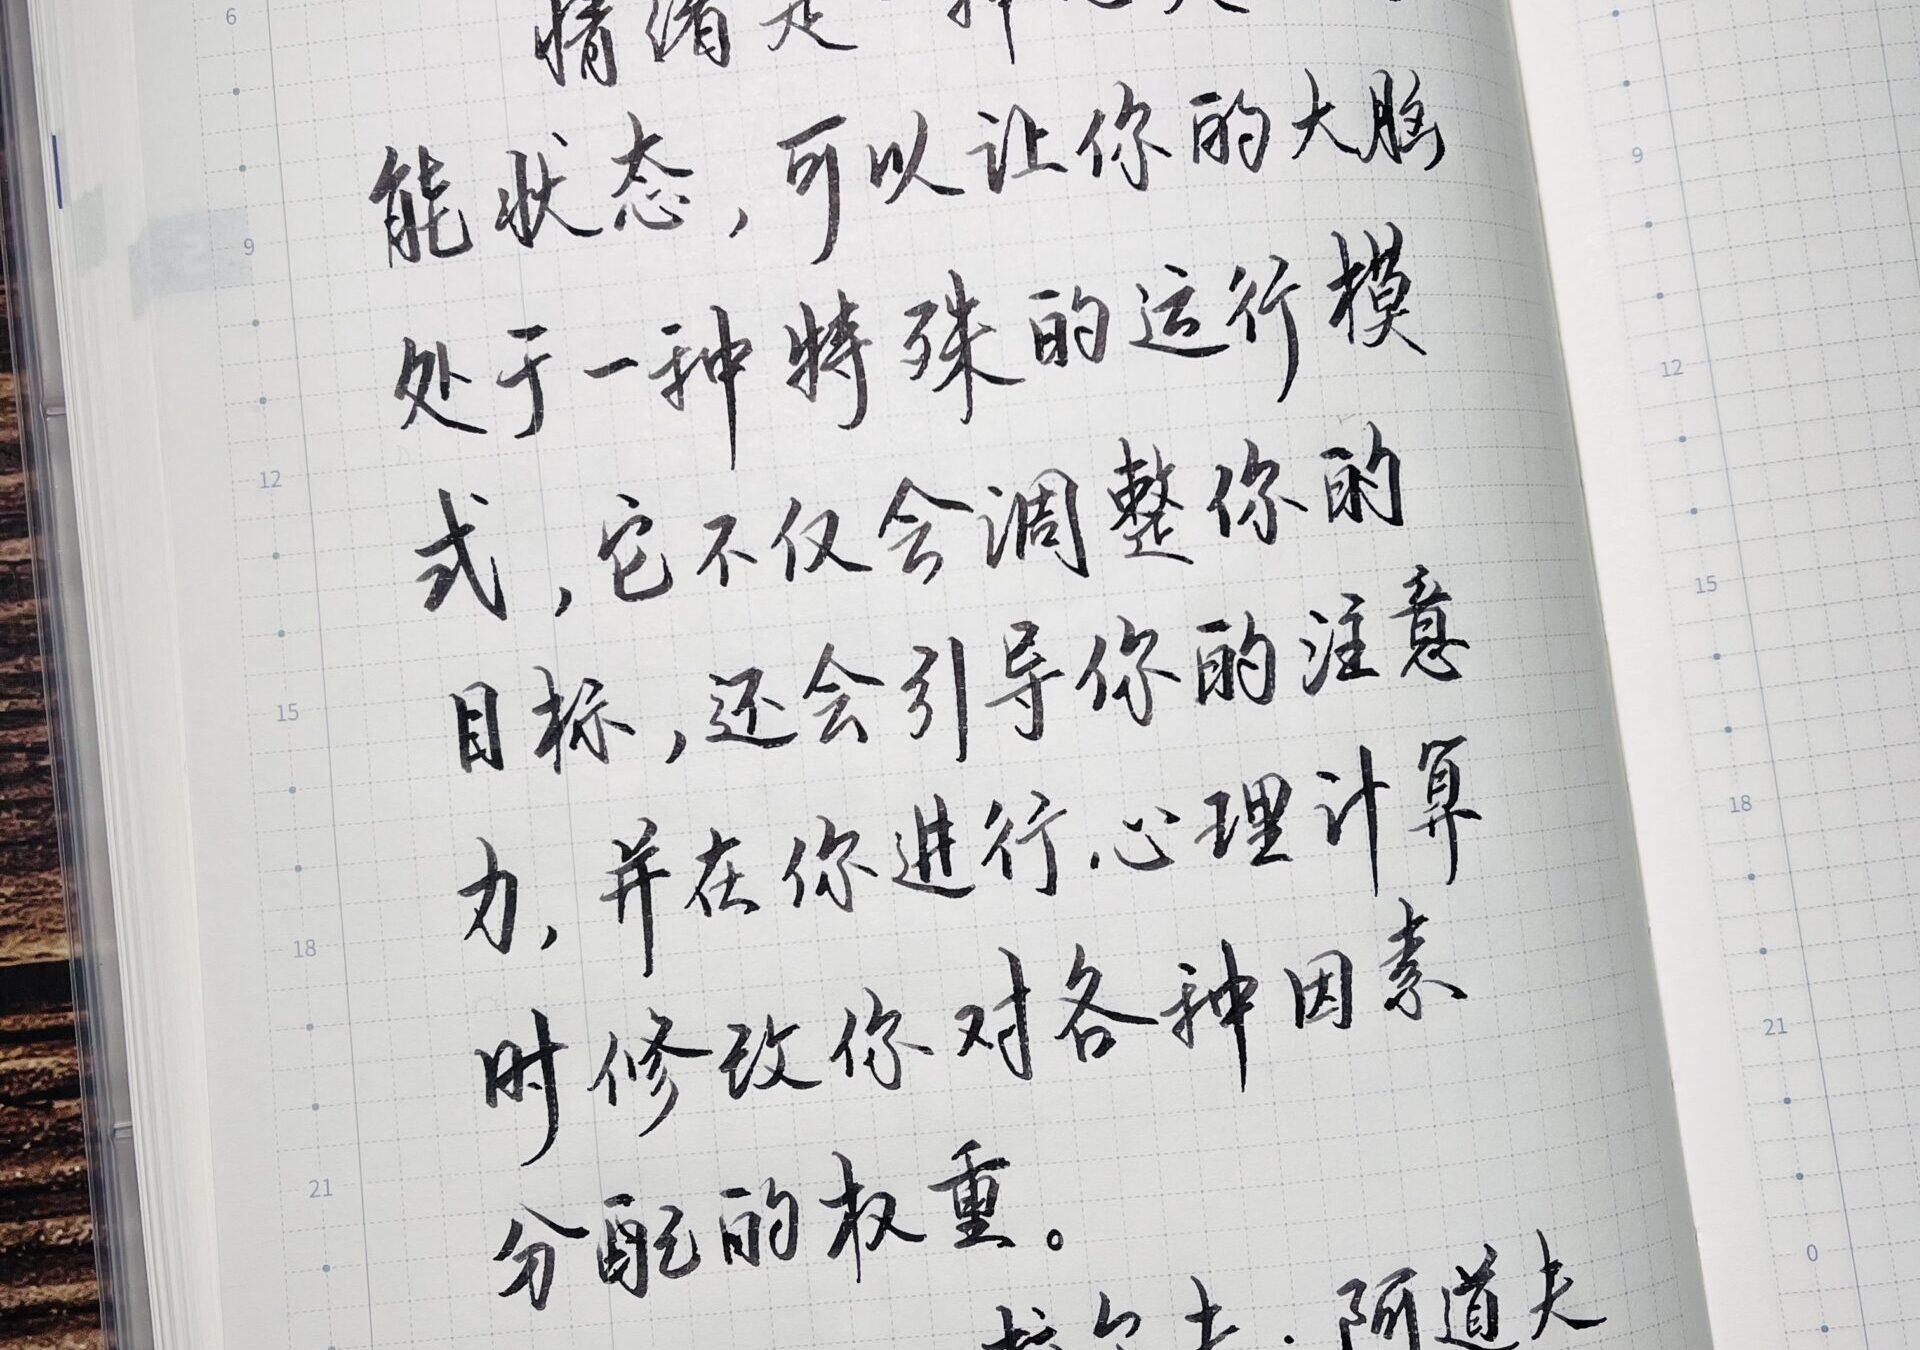 情绪是一种
能状态，可以让你的大脑
处于一种特殊的运行模
式，它不仅会调整你的
目标，还会引导你的注意
力，并在你进行心理计算
时修改你对各种因素
分配的权重。
阿道夫
6
9
12
15
18
21
9
12
15
18
21
0